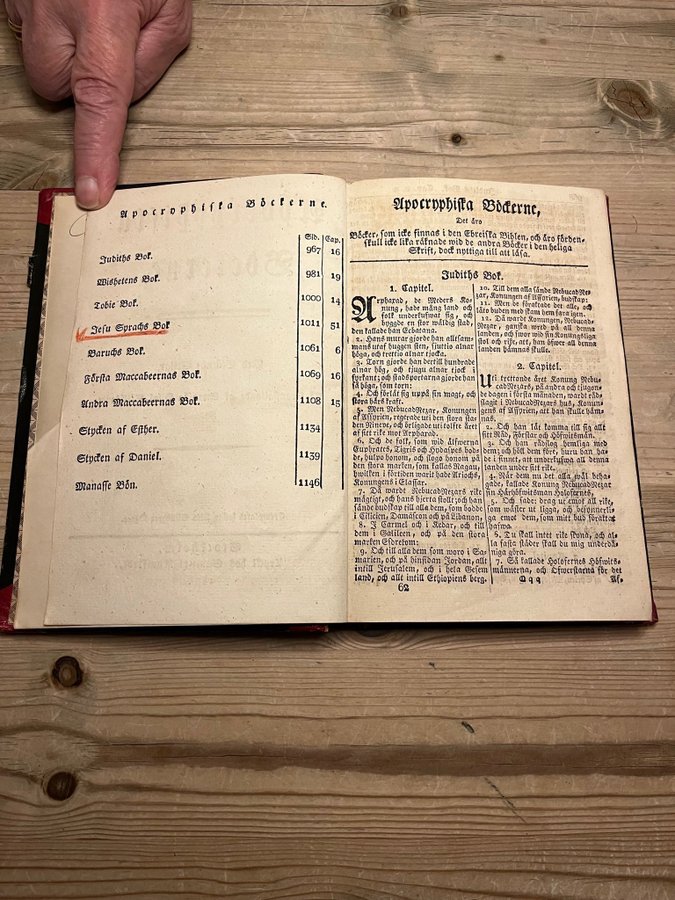 Apocryphiska Böckerne.
Sid. Cap.
Judiths Bok. 967 16
Wishetens Bok. 981 19
Tobie Bok. 1000 14
Jesu Syrachs Bok 1011 51
Baruchs Bok. 1061 6
Första Maccabeernas Bok. 1069 16
Andra Maccabeernas Bok. 1108 15
Stycken af Esther. 1134
Stycken af Daniel. 1139
Manasse Bön. 1146
Apocryphiska Böckerne,
Det äro
Böcker, som icke finnas i den Ebreiska Biblen, och äro förden-
skull icke lika räknade wid de andra Böcker i den heliga
Skrift, dock nyttiga till att läsa.
Judiths Bok.
1. Capitel.
Arpharad, de Meders Ko-
nung, hade mång land och
folk underkufwat sig, och
byggde en stor wäldig stad,
den kallade han Ecbatana.
2. Hans murar gjorde han allsam-
mans utaf huggen sten, sjuttio alnar
höga, och trettio alnar tjocka.
3. Torn gjorde han dertill hundrade
alnar hög, och tjugu alnar tjock i
fyrkant; och stadsportarna gjorde han
så höga, som torn:
4. Och förlät sig uppå sin magt, och
stora härs kraft.
5. Men NebucadNezar, Konungen
af Assyrien, regerade uti den stora sta-
den Ninive, och örligade uti tolfte året
af sitt rike mot Arpharad.
6. Och de folk, som wid älfwerna
Euphrates, Tigris och Hydaspes bod-
de, hulpo honom, och slogo honom på
den stora marken, som kallas Ragau,
hwilken i förtiden warit hade Ariochs,
Konungens i Elassar.
7. Då wardt NebucadNezars rike
mägtigt, och hans hjerta stolt; och han
sände budskap till alla dem, som bodde
i Cilicien, Damascon och på Libanon,
8. I Carmel och i Kedar, och till
dem i Galileen, och på den stora
marken Esdrelom:
9. Och till alla dem som woro i Sa-
marien, och på hinsidan Jordan, allt
intill Jerusalem, och i hela Gesem
land, och allt intill Ethiopiens berg.
62
10. Till dem alla sände NebucadNe-
zar, Konungen af Assyrien, budskap:
11. Men de försakade det alle, och
läto buden med skam hem fara igen.
12. Då wardt Konungen, Nebucad-
Nezar, ganska wred på all denna
landen, och swor wid sin Konungsliga
stol och rike, att han öfwer all denna
landen hämnas skulle.
2. Capitel.
Uti trettonde året Konung Nebu-
cadNezars, på andra och tjugon-
de dagen i första månaden, wardt råd-
slagit i NebucadNezars hus, Konun-
gens af Assyrien, att han skulle häm-
nas.
2. Och han lät komma till sig allt
sitt Råd, Förstar och Höfwitsmän.
3. Och han rådslog hemliga med
dem; och höll dem före, huru han ha-
de i sinnet, att underlägga all denna
landen under sitt rike.
4. När dem nu det alla wäl beha-
gade, kallade Konung NebucadNezar
sin Härhöfwitsman Holofernes,
5. Och sade: drag ut emot all rike,
som wäster ut ligga, och besynnerli-
ga emot dem, som mitt bud försakat
hafwa.
6. Du skall intet rike skona, och al-
la fasta städer skall du mig underdå-
niga göra.
7. Så kallade Holofernes Höfwits-
männerna, och Öfwerstarna för det
Qqq